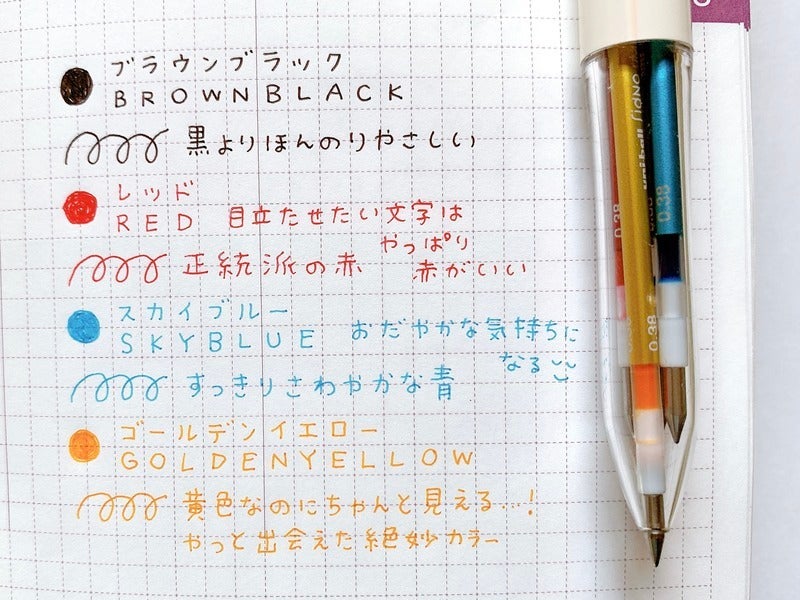 ブラウンブラック
BROWNBLACK
黒よりほんのりやさしい
レッド
RED 目立たせたい文字は
やっぱり
正統派の赤 赤がいい
スカイブルー
SKYBLUE おだやかな気持ちに
なる
すっきりさわやかな青
ゴールデンイエロー
GOLDENYELLOW
黄色なのにちゃんと見える…!
やっと出会えた絶妙カラー
0.38
0.38
0.38
uni-ball SIGNO